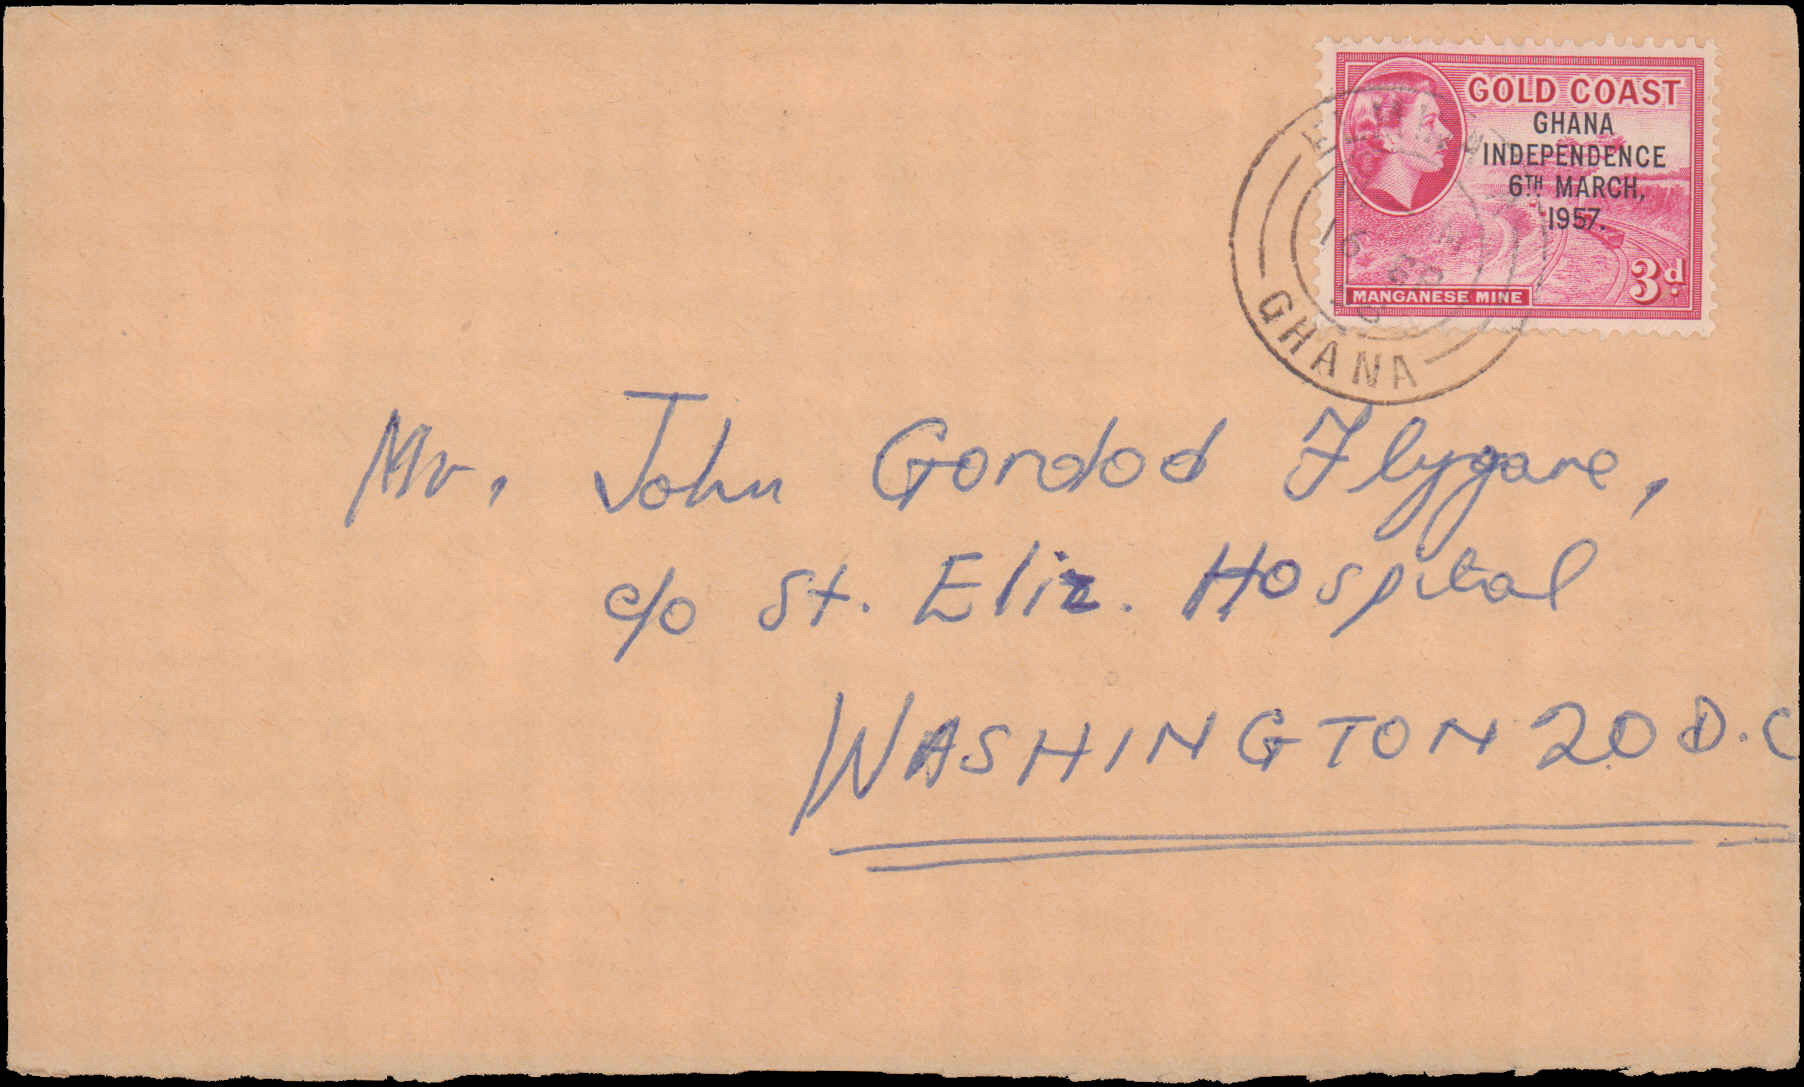 GOLD COAST
GHANA
INDEPENDENCE
6TH MARCH,
1957.
3d
MANGANESE MINE
GHANA
Mr. John Gordod Flygare,
c/o St. Eliz. Hospital
WASHINGTON 20 D.C